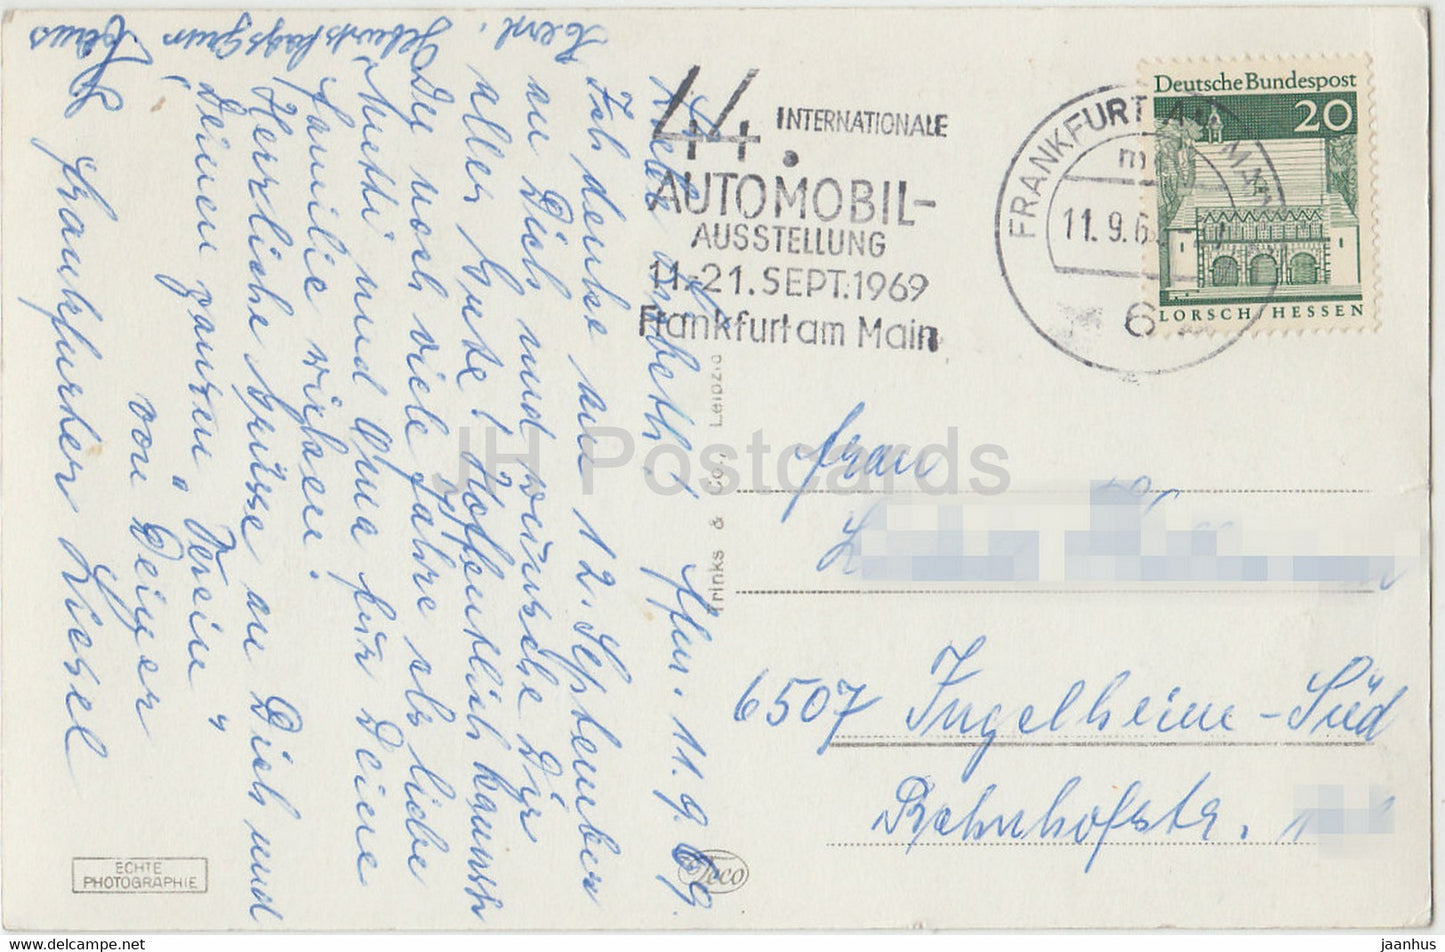 Herzl.
Geburtstagsgruss
Haus
Liebe Lisbeth, Ffm. 11.9.69.
Ich denke an 12. September
an Dich und wünsche Dir
alles Gute! Hoffentlich kannst
Du noch viele Jahre als liebe
Mutti und Oma für Deine
Familie wirken.
Herzliche Grüsse an Dich und
Deinen ganzen "Verein"
von Deiner
Frankfurter Liesel
44. INTERNATIONALE
AUTOMOBIL-
AUSSTELLUNG
11.-21. SEPT. 1969
Frankfurt am Main
FRANKFURT AM MAIN
11.9.6
6
Deutsche Bundespost
20
LORSCH/HESSEN
Trinks & Co., Leipzig
JH Postcards
Frau
6507 Ingelheim-Süd
Bahnhofstr.
ECHTE
PHOTOGRAPHIE
Teco
www.delcampe.net
jaanhus